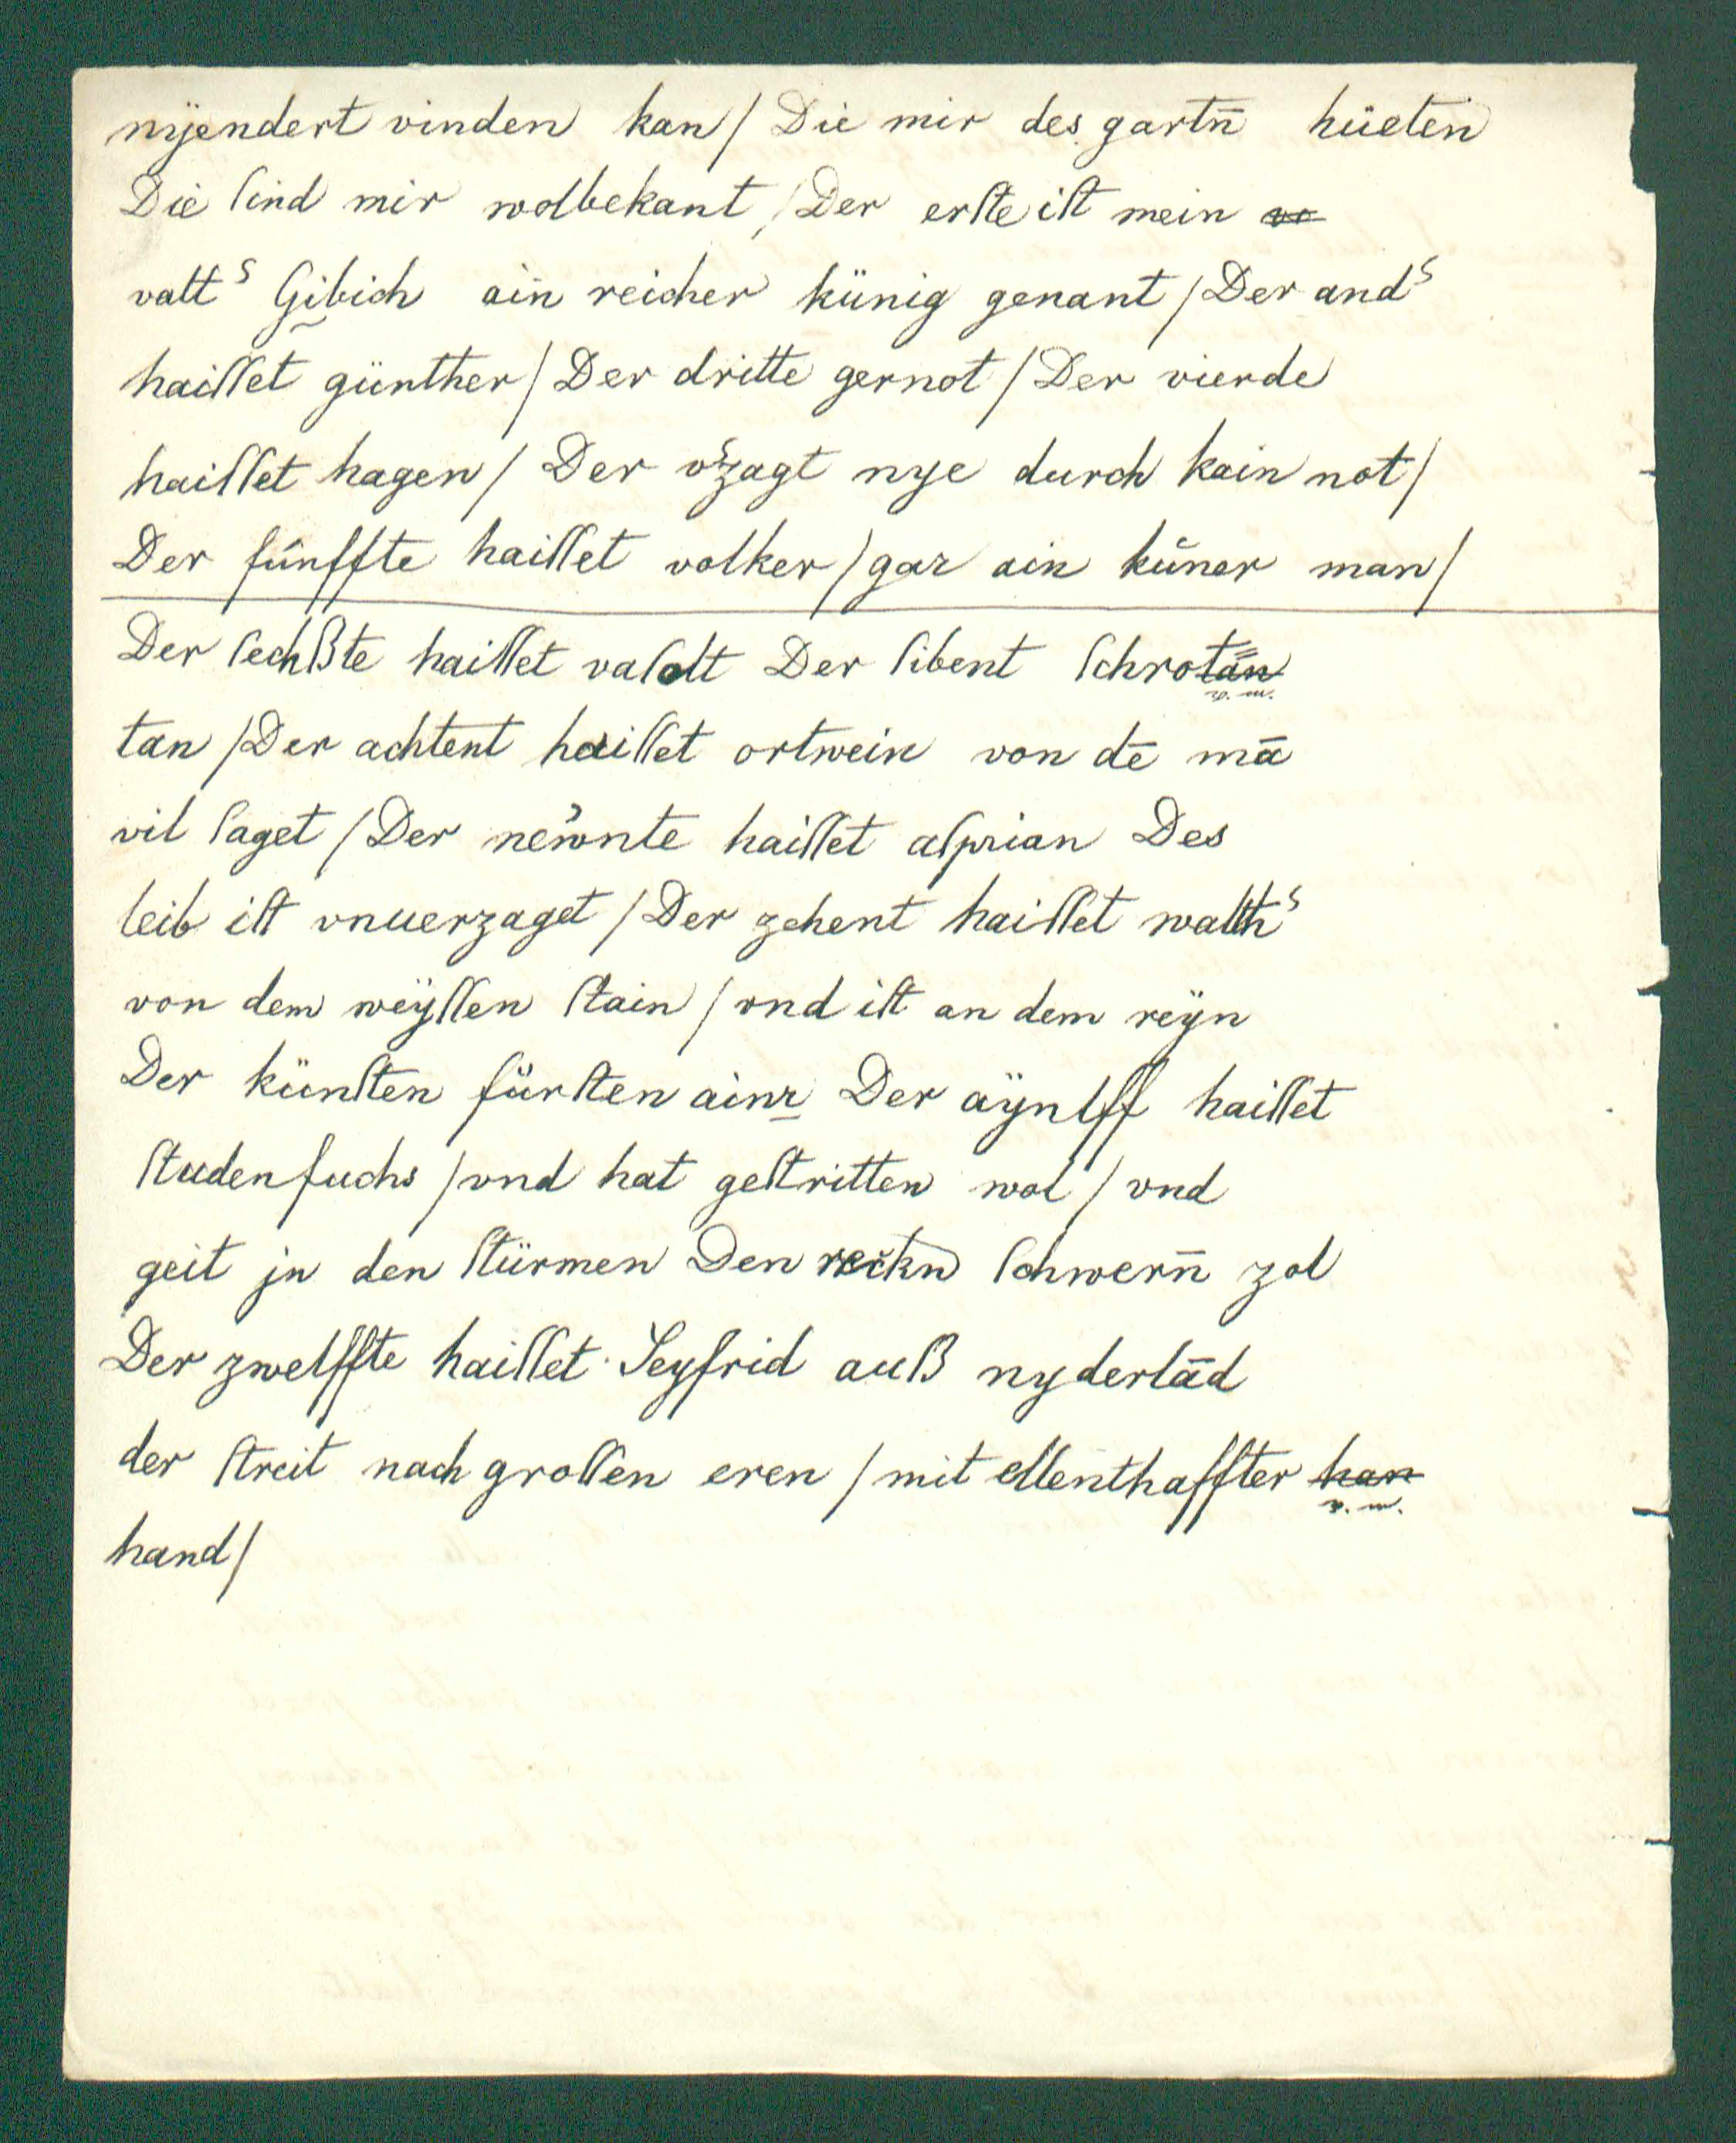 nÿendert vinden kan / Die mir des gartn̄ hüeten
Die ſind mir wolbekant / Der erſte iſt mein vo
vatt᷑ Gibich ain reicher künig genant / Der and᷑
haiſſet günther / Der dritte gernot / Der vierde
haiſſet hagen / Der v᷑zagt nye durch kain not /
Der fúnffte haiſſet volker / gar ain kúner man /
Der ſechßte haiſſet vaſolt Der ſibent ſchrotan
v. m.
tan / Der achtent haiſſet ortwein von dē mā
vil ſaget / Der newnte haiſſet aſprian Des
leib iſt vnuerzaget / Der zehent haiſſet walth᷑
von dem weÿſſen ſtain / vnd iſt an dem reÿn
Der künſten fürſten ainr Der aÿnlff haiſſet
ſtudenfuchs / vnd hat geſtritten wol / vnd
geit jn den ſtürmen Den reckn ſchwern̄ zol
Der zwelffte haiſſet Seyfrid auß nyderlād
der ſtreit nach groſſen eren / mit ellenthaffter han
v. m.
hand /